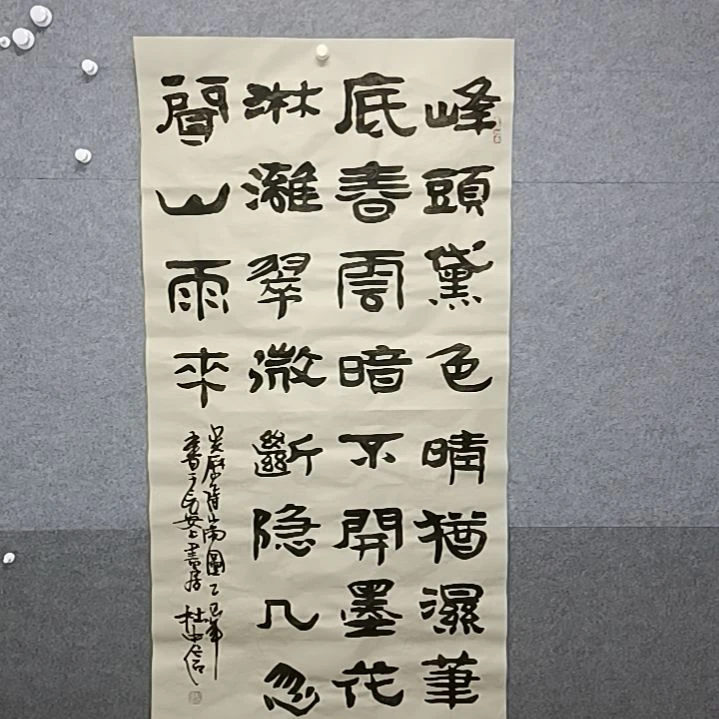 峰頭黛色晴猶濕筆
底春雲暗不開墨花
淋灕翠微斷隐几忽
聞山雨來
吴歷 圖乙巳年
書于長安 杜中信